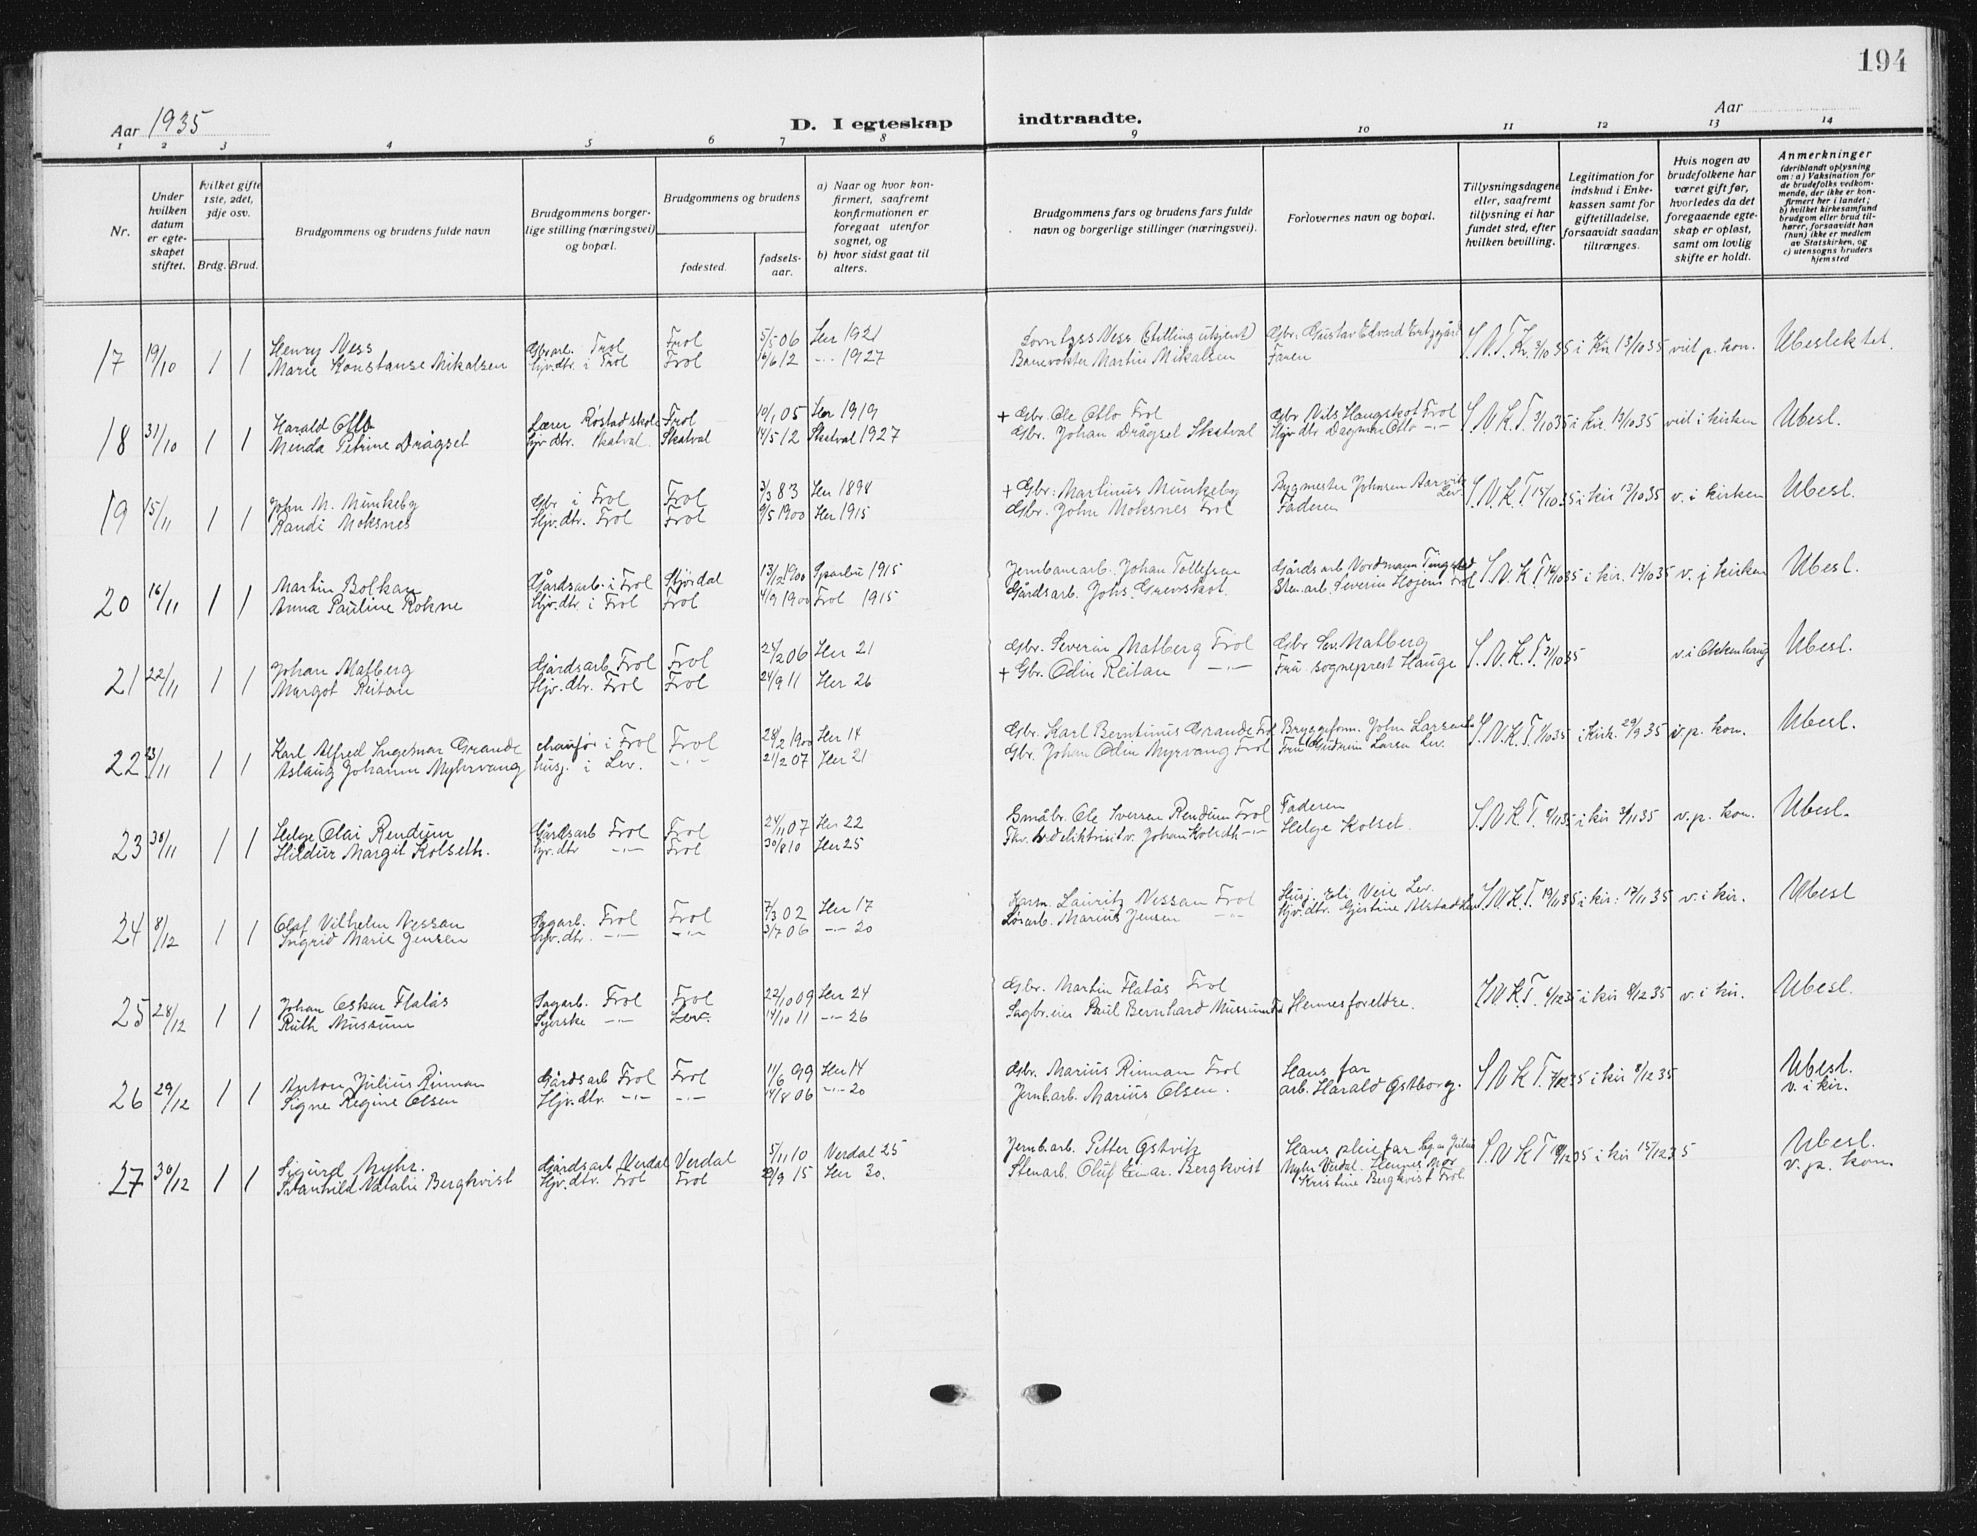 194
Aar 1935
D. I egteskap indtraadte.
Aar
1 2 3 4 5 6 7 8 9 10 11 12 13 14
Nr.
Under hvilken datum er egteskapet stiftet.
Hvilket gifte 1ste, 2det, 3dje osv.
Brdg. Brud.
Brudgommens og brudens fulde navn
Brudgommens borgerlige stilling (næringsvei) og bopæl.
Brudgommens og brudens
fødested.
fødselsaar.
a) Naar og hvor konfirmert, saafremt konfirmationen er foregaat utenfor sognet, og
b) hvor sidst gaat til alters.
Brudgommens fars og brudens fars fulde navn og borgerlige stillinger (næringsvei).
Forlovernes navn og bopæl.
Tillysningsdagene eller, saafremt tillysning ei har fundet sted, efter hvilken bevilling.
Legitimation for indskud i Enkekassen samt for giftetilladelse, forsaavidt saadan tiltrænges.
Hvis nogen av brudefolkene har været gift før, hvorledes da det foregaaende egteskap er opløst, samt om lovlig skifte er holdt.
Anmerkninger
(deriblandt oplysning om: a) Vaksination for de brudefolks vedkommende, der ikke er konfirmert her i landet;
b) hvilket kirkesamfund brudgom eller brud tilhører, forsaavidt han (hun) ikke er medlem av Statskirken, og
c) utensogns bruders hjemsted
17 19/10 1 1 Henry Ness Gbrarb. Frol Frol 5/5 06 Her 1921 Ness (Stilling ukjent) Gbr. Gustav Edvard 3/10 35 i Kir 13/10 35 viet p. kon. Ubeslektet.
Marie Konstanse Mikalsen Hjv.dtr. i Frol Frol 16/6 12 -"- 1927 Banevokter Martin Mikalsen Faren
18 31/10 1 1 Harald Otto Lærer Rostad skole Frol 10/1 05 Her 1919 + Gbr. Ole Otto Frol Gbr Nils Haugskot Frol S.N.K.T. 3/10 35 i kir. 13/10 35 viet i kirken Ubesl.
Menda Petrine Drågset Hjv.dtr. Skatval Skatval 14/5 12 Skatval 1927 Gbr. Johan Drågset Skatval Hjv dtr Dagmar Otto -"-
19 15/11 1 1 John M. Munkeby Gbr i Frol Frol 3/3 83 Her 1898 + Gbr. Martinus Munkeby Bygmester Johnsen Lev. S.N.K.T 15/10 35 i kir 13/10 35 v. i kirken Ubesl.
Randi Moksnes Hjv.dtr. Frol Frol 9/5 1900 Her 1915 Gbr. John Moksnes Frol Faderen
20 16/11 1 1 Martin Bolkan Gårdsarb. i Frol Stjørdal 13/12 1900 Sparbu 1915 Jernbanearb. Johan Tollefsen Gårdsarb Nordmann Tingstad S.N.K.T 14/10 35 i kir. 13/10 35 v. i kirken Ubesl.
Anna Pauline Rokne Hjv.dtr i Frol Frol 4/9 1900 Frol 1915 Gårdsarb. Johs. Grevskot. Sten.arb. Severin Hojem Frol
21 22/11 1 1 Johan Matberg Gårdsarb Frol Frol 24/2 06 Her 21 Gbr. Severin Matberg Frol Gbr Sev. Matberg S.N.K.T 31/10 35 v. i Okkenhaug Ubesl.
Margot Reitan Hjv.dtr. Frol Frol 24/9 11 Her 26 + Gbr. Odin Reitan -"- Fru sogneprest Hauge
22 23/11 1 1 Karl Alfred Ingemar Grande chaufør i Frol Frol 28/2 1900 Her 14 Gbr. Karl Berntinus Grande Frol Bryggeform. John Larsen S.N.K.T 1/10 35 i kirk. 29/9 35 v. p. kon. Ubesl.
Aslaug Johanne Myhrvang husj. i Lev. -"- 21/2 07 Her 21 Gbr. Johan Odin Myrvang Frol Fru Gudrun Larsen Lev.
23 30/11 1 1 Helge Olai Rendum Gårdsarb Frol Frol 24/11 07 Her 22 Småbr. Ole Iversen Rendum Frol Faderen S.N.K.T. 6/11 35 i kir 3/11 35 v. p. kon. Ubesl.
Hildur Margit Kolseth. Hjv.dtr -"- Frol 30/8 10 Her 25 Johan Kolseth -"- Helge Kolset.
24 8/12 1 1 Olaf Vilhelm Nessan Sagarb. Frol Frol 7/3 02 Her 17 Lauritz Nessan Frol Husj. Eli Veie Lev. S.N.K.T. 19/11 35 i kir. 17/11 35 v. i kir. Ubesl
Ingrid Marie Jensen Hjv.dtr. -"- -"- 3/7 06 -"- 20 Løsarb. Marius Jensen -"- Hjv.dtr. Gjertine
25 28/12 1 1 Johan Oskar Flatås Sagarb. Frol Frol 22/10 09 Her 24 Gbr. Martin Flatås Frol Hennes foreldre. S.N.K.T. 6/12 35 i kir 8/12 35 v. i kir. Ubesl.
Ruth Mussum Syerske -"- Lev. 14/10 11 -"- 26 Sagbr.eier Paul Bernhard Mussum
26 29/12 1 1 Anton Julius Rinnan Gårdsarb Frol Frol 11/6 99 Her 14 Gbr. Marius Rinnan Frol Hans far S.N.K.T. 7/12 35 i kir 8/12 35 Ubesl.
Signe Regine Olsen Hjv.dtr. -"- -"- 14/8 06 -"- 20 Jernb.arb. Marius Olsen. arb. Harald Østborg. v. i kir.
27 30/12 1 1 Sigurd Myhr. Gårdsarb Verdal Verdal 5/11 10 Verdal 25 Jernb.arb. Petter Østvik Hans pleiefar S.N.K.T 18/12 35 i kir 15/12 35 Ubesl.
Natalie Bergkvist Hjv.dtr. Frol Frol 22/9 15 Her 30. Stenarb. Oluf Einar Bergkvist Myhr Verdal. Hennes mor v. p. kon.
Kristine Bergkvist Frol.